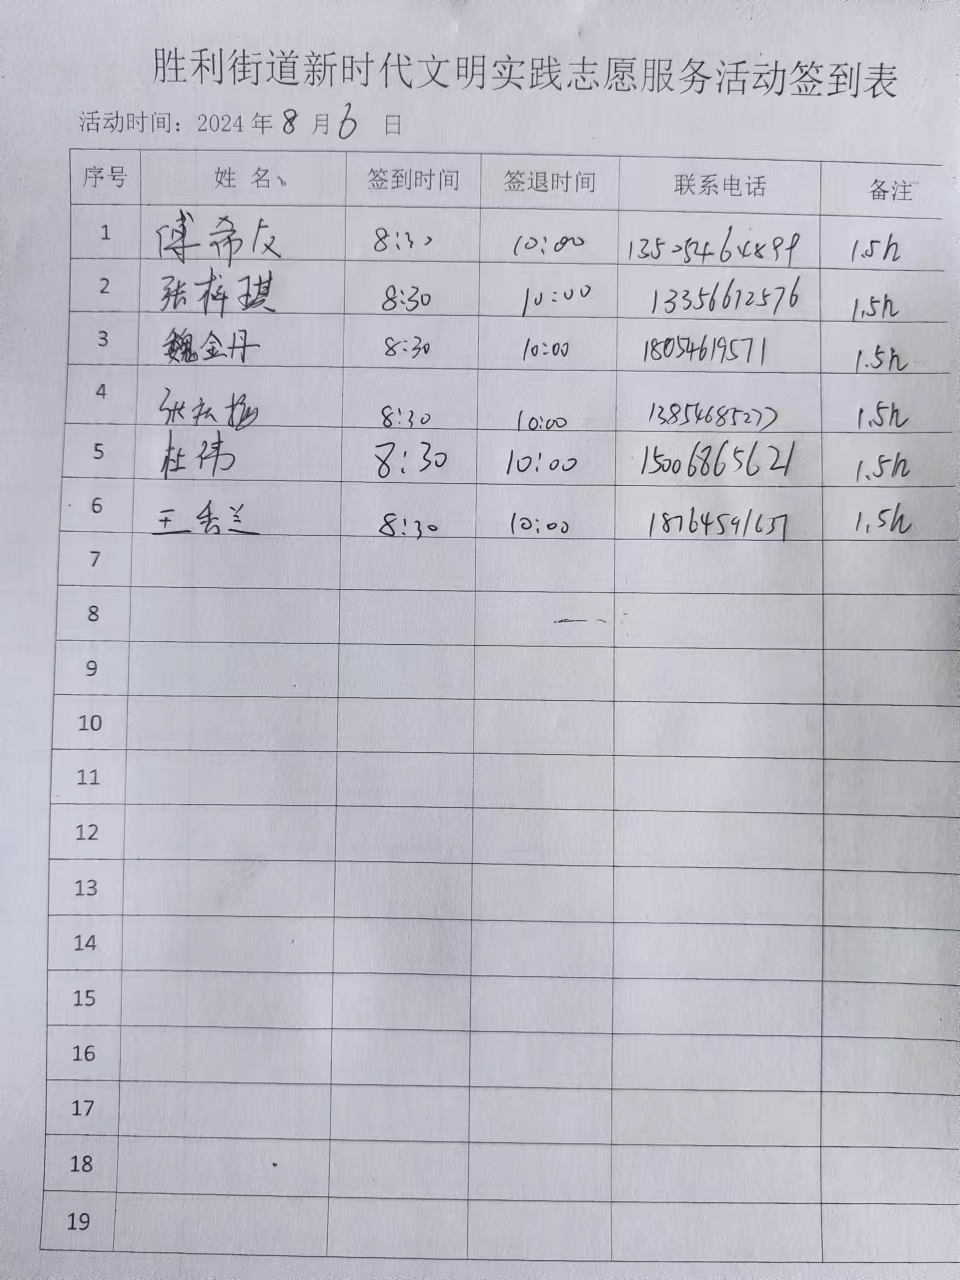 胜利街道新时代文明实践志愿服务活动签到表
活动时间：2024年8月6日
序号 姓名 签到时间 签退时间 联系电话 备注
1 傅希友 8:30 10:00 1.5h
2 张梓琪 8:30 10:00 13356612576 1.5h
3 魏金丹 8:30 10:00 18054619571 1.5h
4 张 8:30 10:00 13854685277 1.5h
5 杜伟 8:30 10:00 15006865621 1.5h
6 王秀兰 8:30 10:00 18764591657 1.5h
7
8
9
10
11
12
13
14
15
16
17
18
19